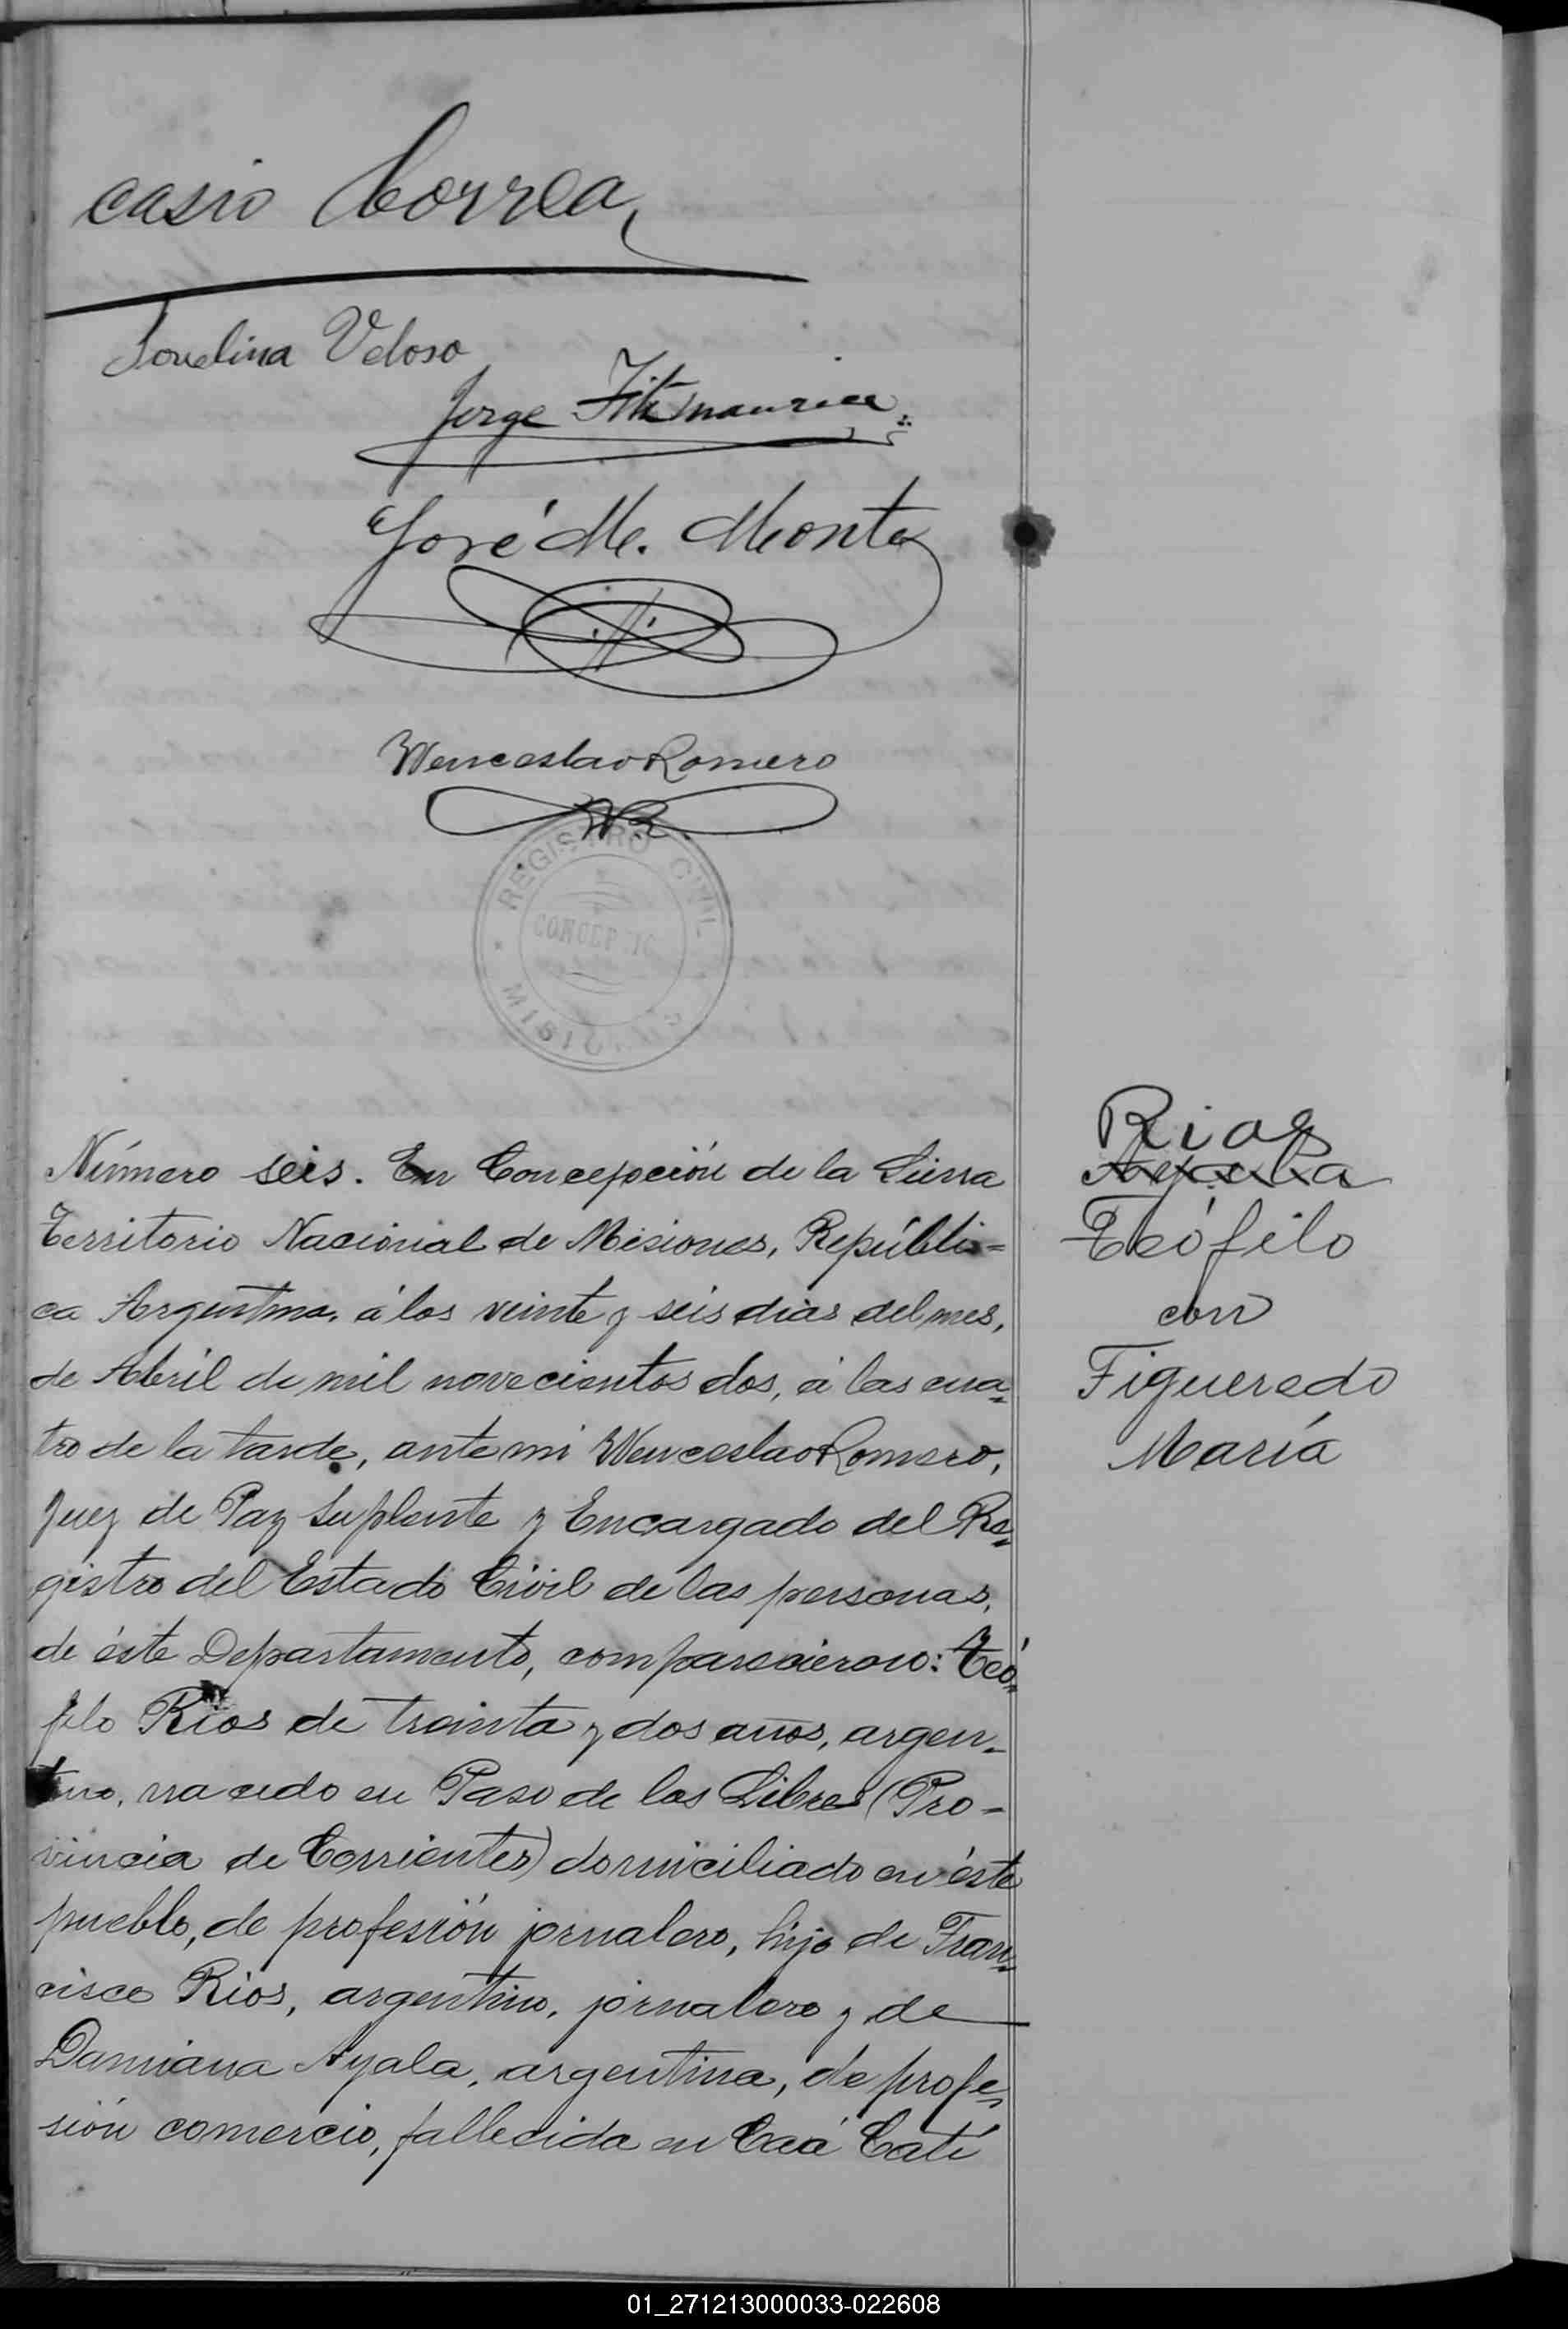 casio Correa
Jovelina Veloso
Jorge Fitzmaurice
José M. Montes
Wenceslao Romero
WR
REGISTRO CIVIL
CONCEPCIO
MISIONES
Rios
Ayala
Teófilo
con
Figueredo
María
Número seis. En Concepción de la Sierra
Territorio Nacional de Misiones, Repúbli=
ca Argentina, á los veinte y seis dias del mes,
de Abril de mil novecientos dos, á las cua=
tro de la tarde, ante mi Wenceslao Romero,
Juez de Paz Suplente y Encargado del Re=
gistro del Estado Civil de las personas,
de éste Departamento, comparecieron: Teó=
filo Rios de treinta y dos años, argen=
tino, nacido en Paso de los Libres (Pro-
vincia de Corrientes) domiciliado en éste
pueblo, de profesión jornalero, hijo de Fran=
cisco Rios, argentino, jornalero y de
Damiana Ayala, argentina, de profe=
sión comercio, fallecida en Caá Catí
01_271213000033-022608